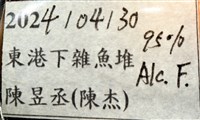 2024/04/30
東港下雜魚堆
陳昱丞(陳杰)
95%
Alc. F.